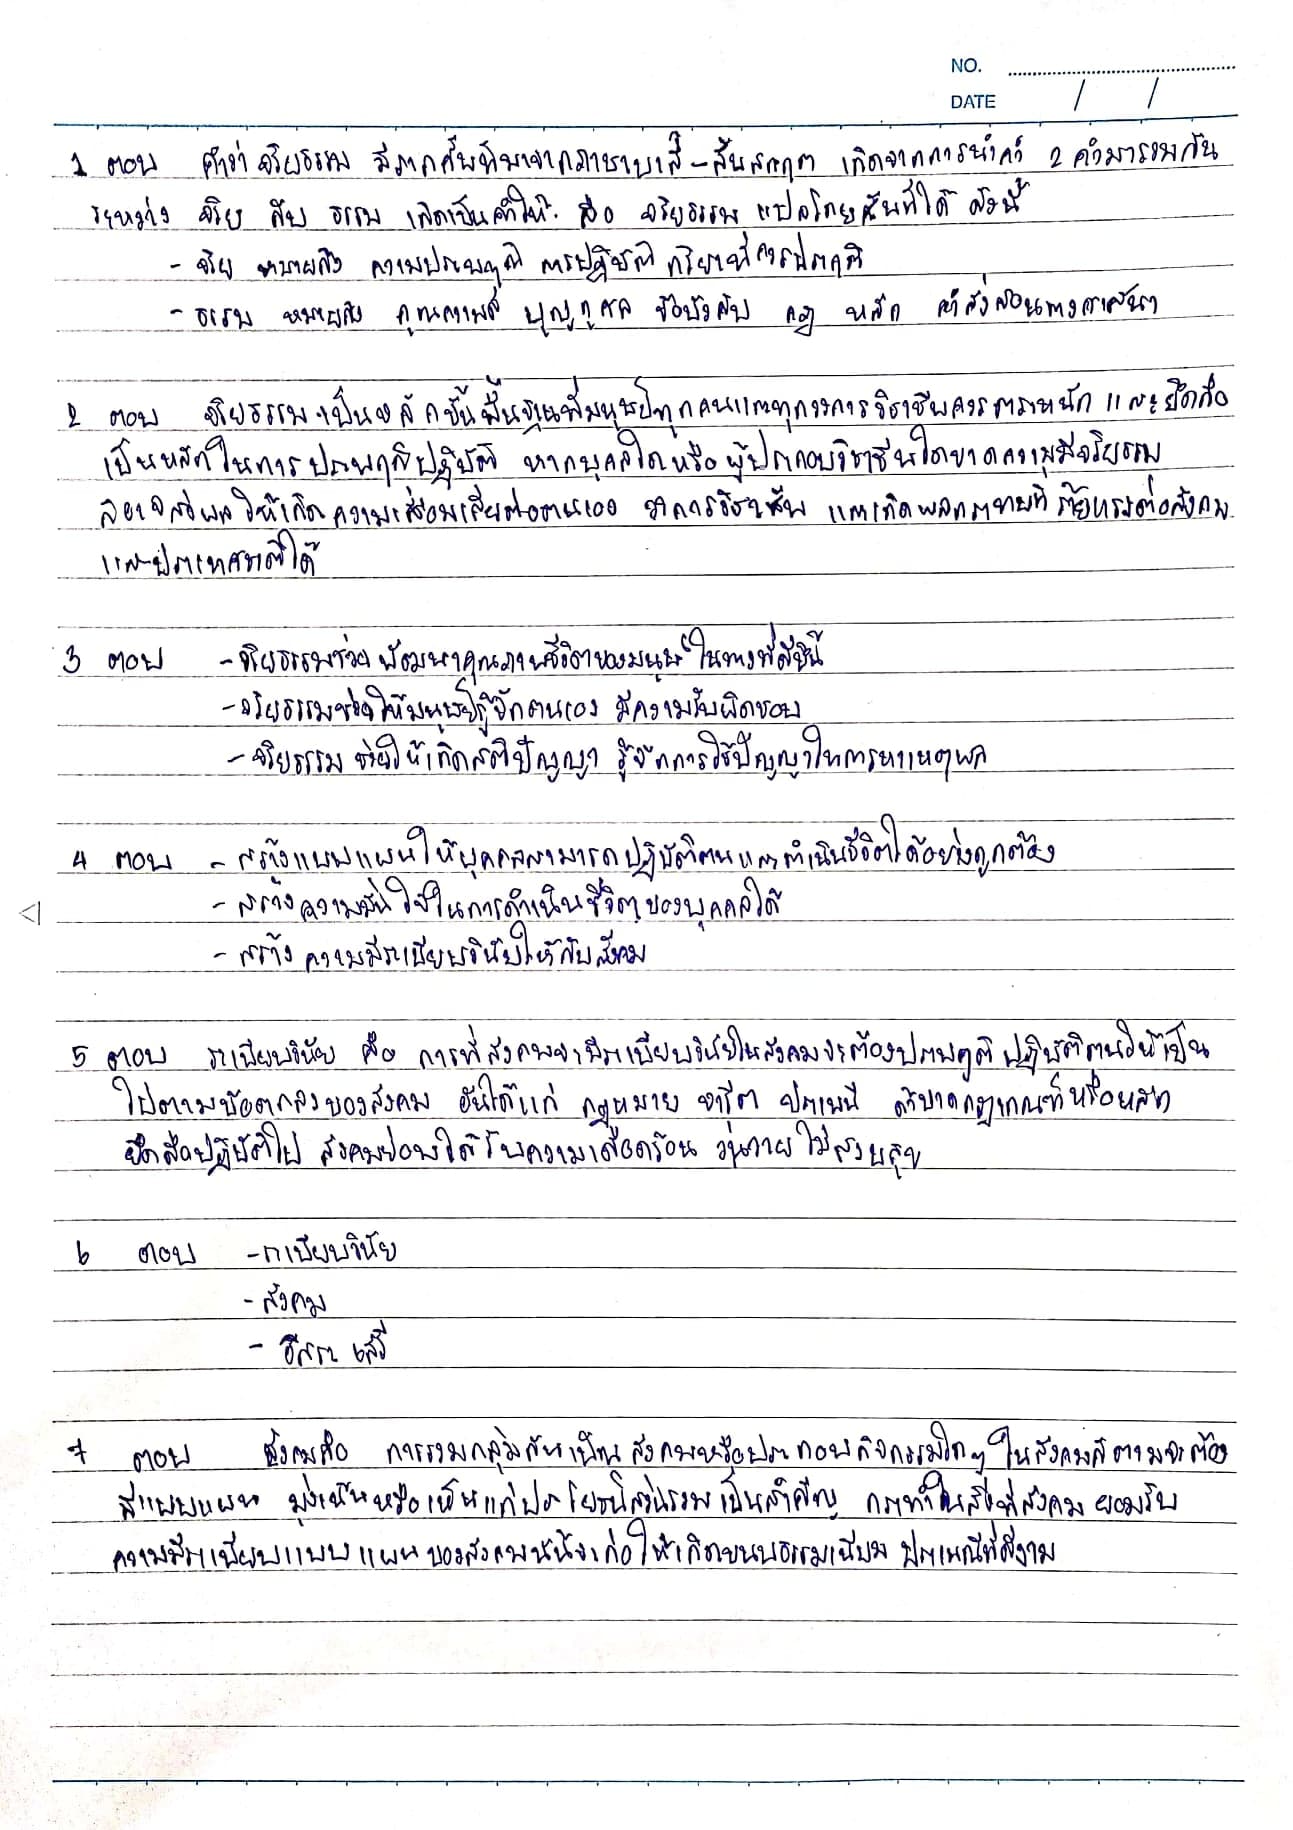 NO.
DATE / /
1 ตอบ คำว่า จริยธรรม มีรากศัพท์มาจากภาษาบาลี - สันสกฤต เกิดจากการนำคำ 2 คำมารวมกัน
ระหว่าง จริย กับ ธรรม เกิดเป็นคำใหม่ คือ จริยธรรม แปลโดยศัพท์ได้ ดังนี้
- จริย หมายถึง ความประพฤติ การปฏิบัติ กริยาที่ควรประพฤติ
- ธรรม หมายถึง คุณความดี บุญกุศล ข้อบังคับ กฎ หลัก คำสั่งสอนทางศาสนา
2 ตอบ จริยธรรม เป็นหลักขั้นพื้นฐานที่มนุษย์ทุกคนและทุกวงการวิชาชีพควรตระหนัก และยึดถือ
เป็นหลักในการประพฤติปฏิบัติ หากบุคคลใดหรือผู้ประกอบวิชาชีพใดขาดความมีจริยธรรม
ก็อาจส่งผลให้เกิดความเสื่อมเสียต่อตนเอง วงการวิชาชีพ และเกิดผลกระทบที่ร้ายแรงต่อสังคม
และประเทศชาติได้
3 ตอบ - จริยธรรมช่วยพัฒนาคุณภาพชีวิตของมนุษย์ในทางที่ดีขึ้น
- จริยธรรมช่วยให้มนุษย์รู้จักตนเอง มีความรับผิดชอบ
- จริยธรรมช่วยให้เกิดสติปัญญา รู้จักการใช้ปัญญาในการหาเหตุผล
4 ตอบ - สร้างแบบแผนให้บุคคลสามารถปฏิบัติตนและดำเนินชีวิตได้อย่างถูกต้อง
- สร้างความมั่นใจในการดำเนินชีวิตของบุคคลได้
- สร้างความมีระเบียบวินัยให้กับสังคม
5 ตอบ ระเบียบวินัย คือ การที่สังคมจะมีระเบียบวินัยในสังคมจะต้องประพฤติ ปฏิบัติตนให้เป็น
ไปตามข้อตกลงของสังคม อันได้แก่ กฎหมาย จารีต ประเพณี ถ้าขาดกฎเกณฑ์หรือหลัก
ยึดถือปฏิบัติไป สังคมย่อมได้รับความเดือดร้อน วุ่นวาย ไม่สงบสุข
6 ตอบ - ระเบียบวินัย
- สังคม
- อิสระเสรี
7 ตอบ สังคมคือ การรวมกลุ่มกันเป็นสังคมหรือประกอบกิจกรรมใดๆ ในสังคมก็ตามจะต้อง
มีแบบแผน มุ่งเน้นหรือเห็นแก่ประโยชน์ส่วนรวมเป็นสำคัญ กระทำในสิ่งที่สังคมยอมรับ
ความมีระเบียบแบบแผนของสังคมนั้นจะก่อให้เกิดขนบธรรมเนียม ประเพณีที่ดีงาม